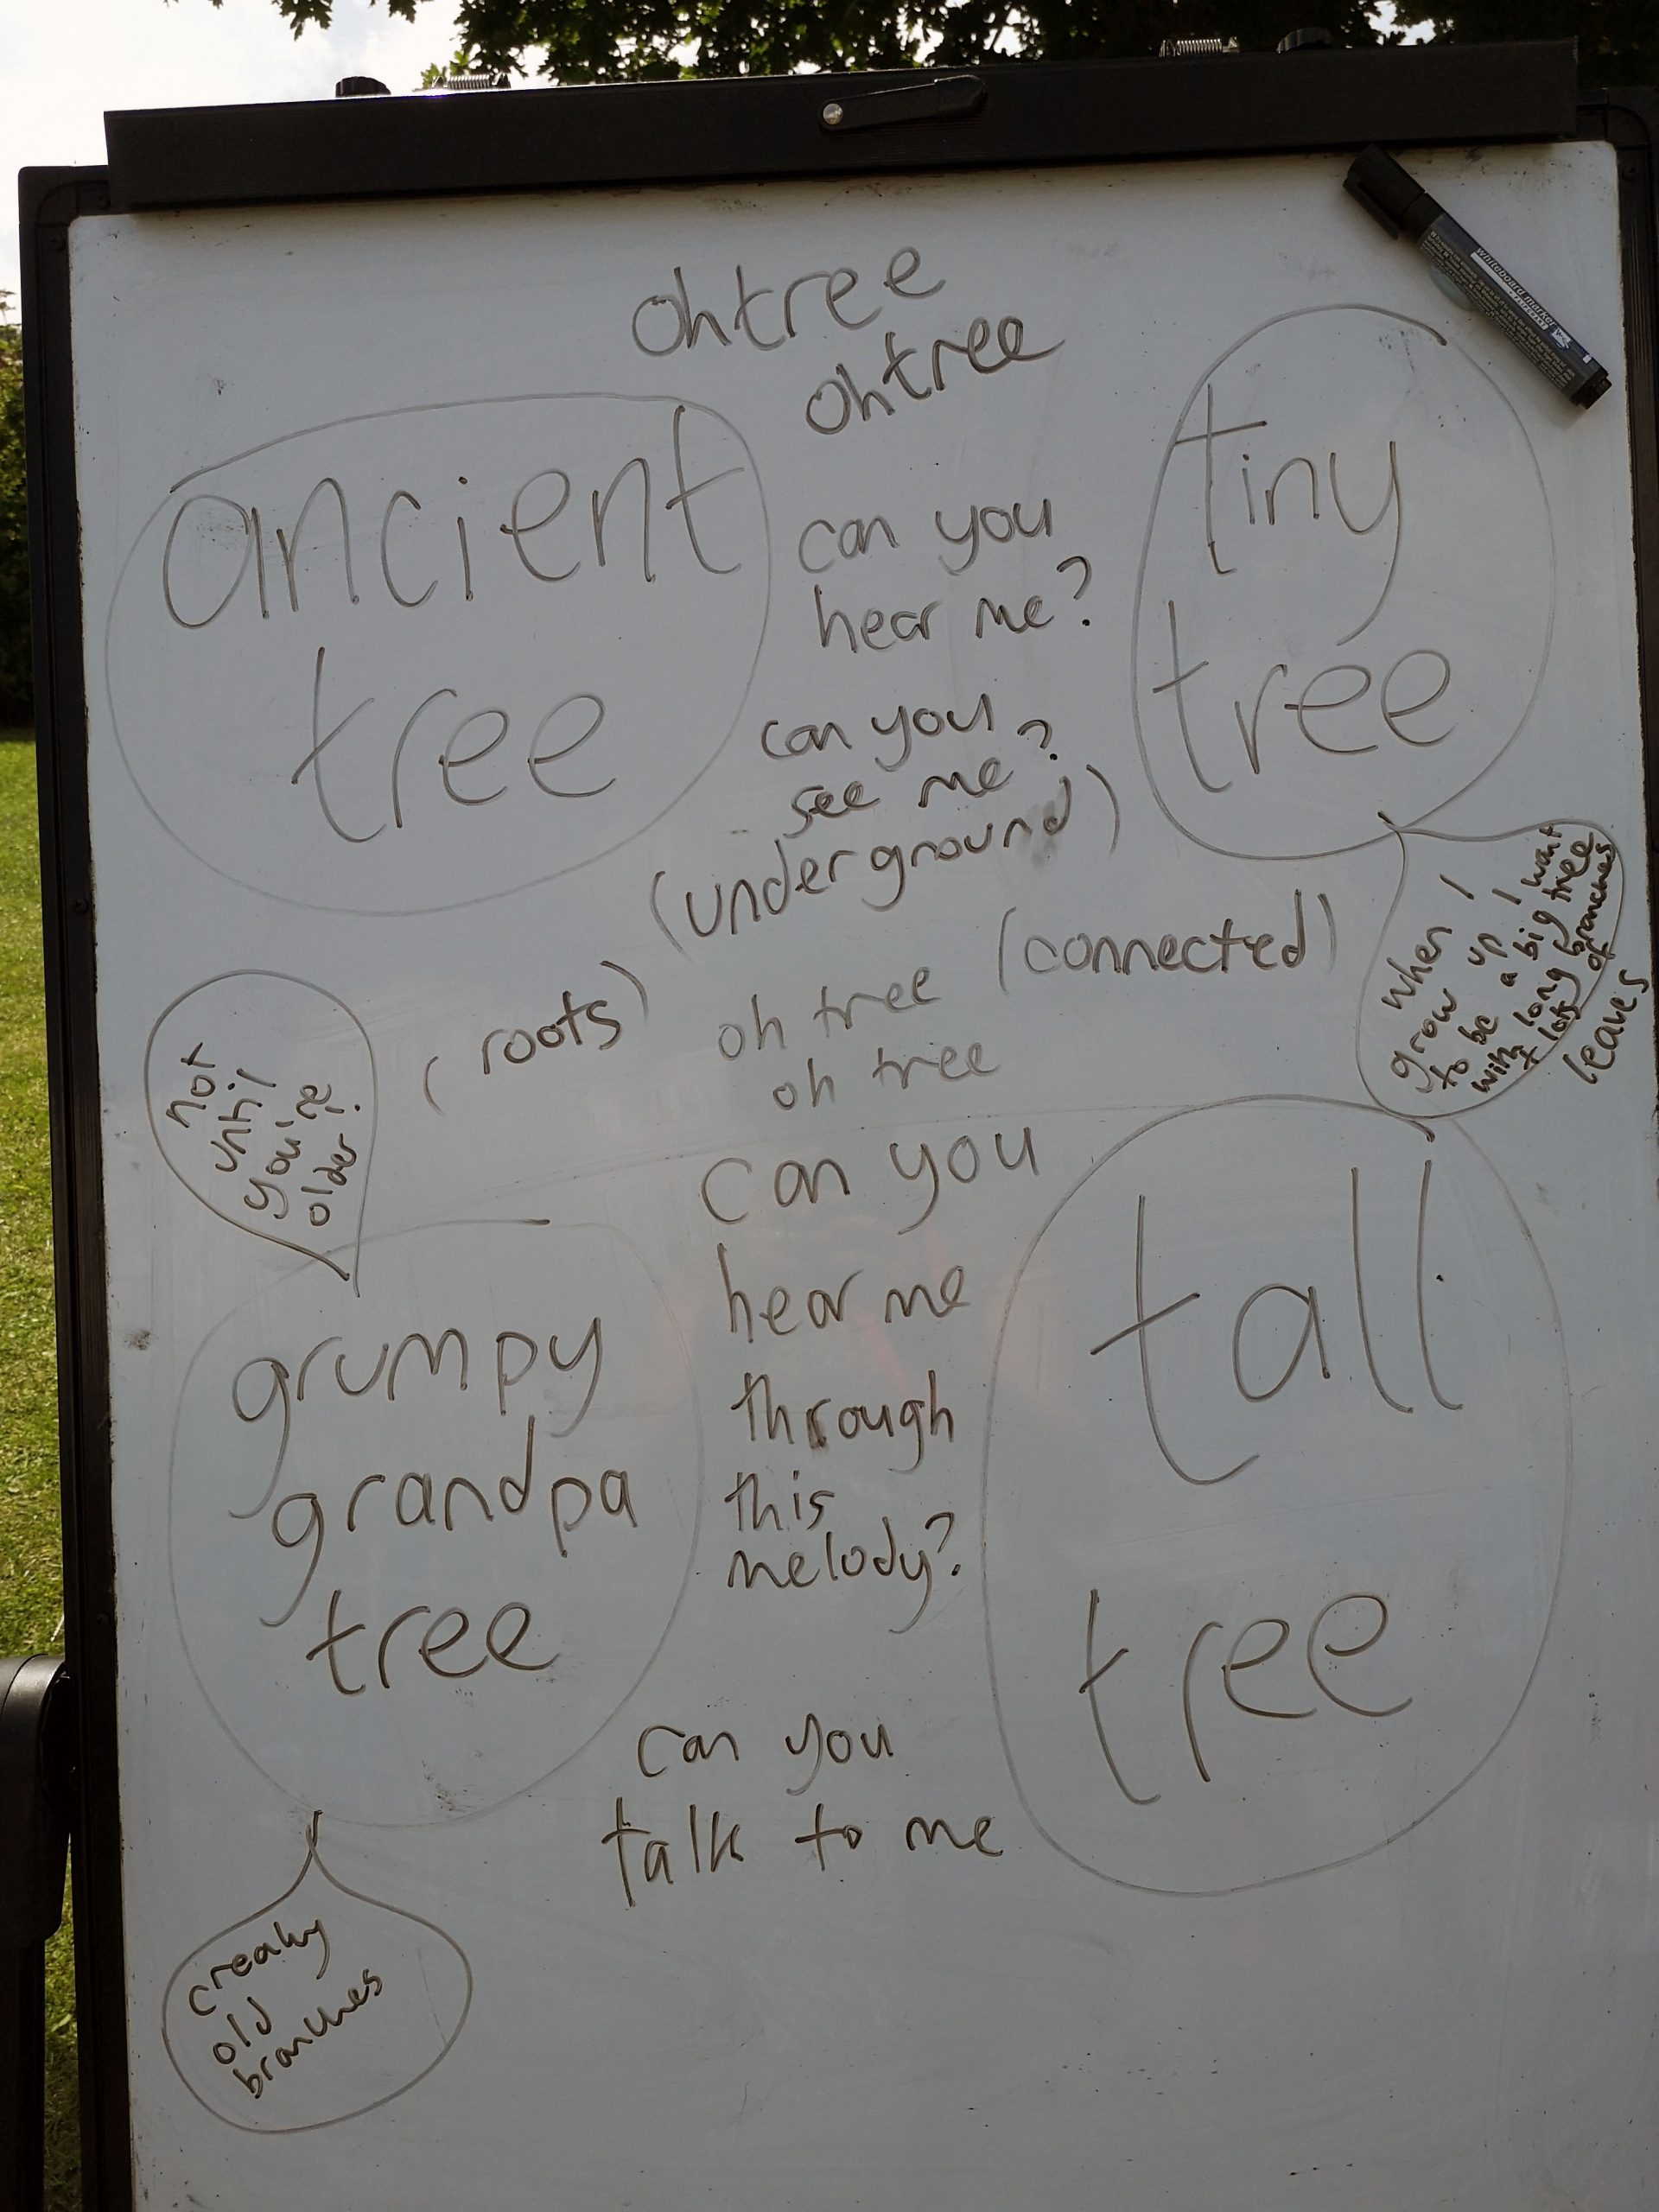 oh tree
oh tree
ancient
tree
can you
hear me?
can you
see me?
tiny
tree
(underground)
(connected)
(roots)
when I
grow up I want
to be a big tree
with long branches
+ lots of
leaves
not
until
you're
older!
oh tree
oh tree
can you
hear me
through
this
melody?
grumpy
grandpa
tree
tall
tree
can you
talk to me
creaky
old
branches
whiteboard marker